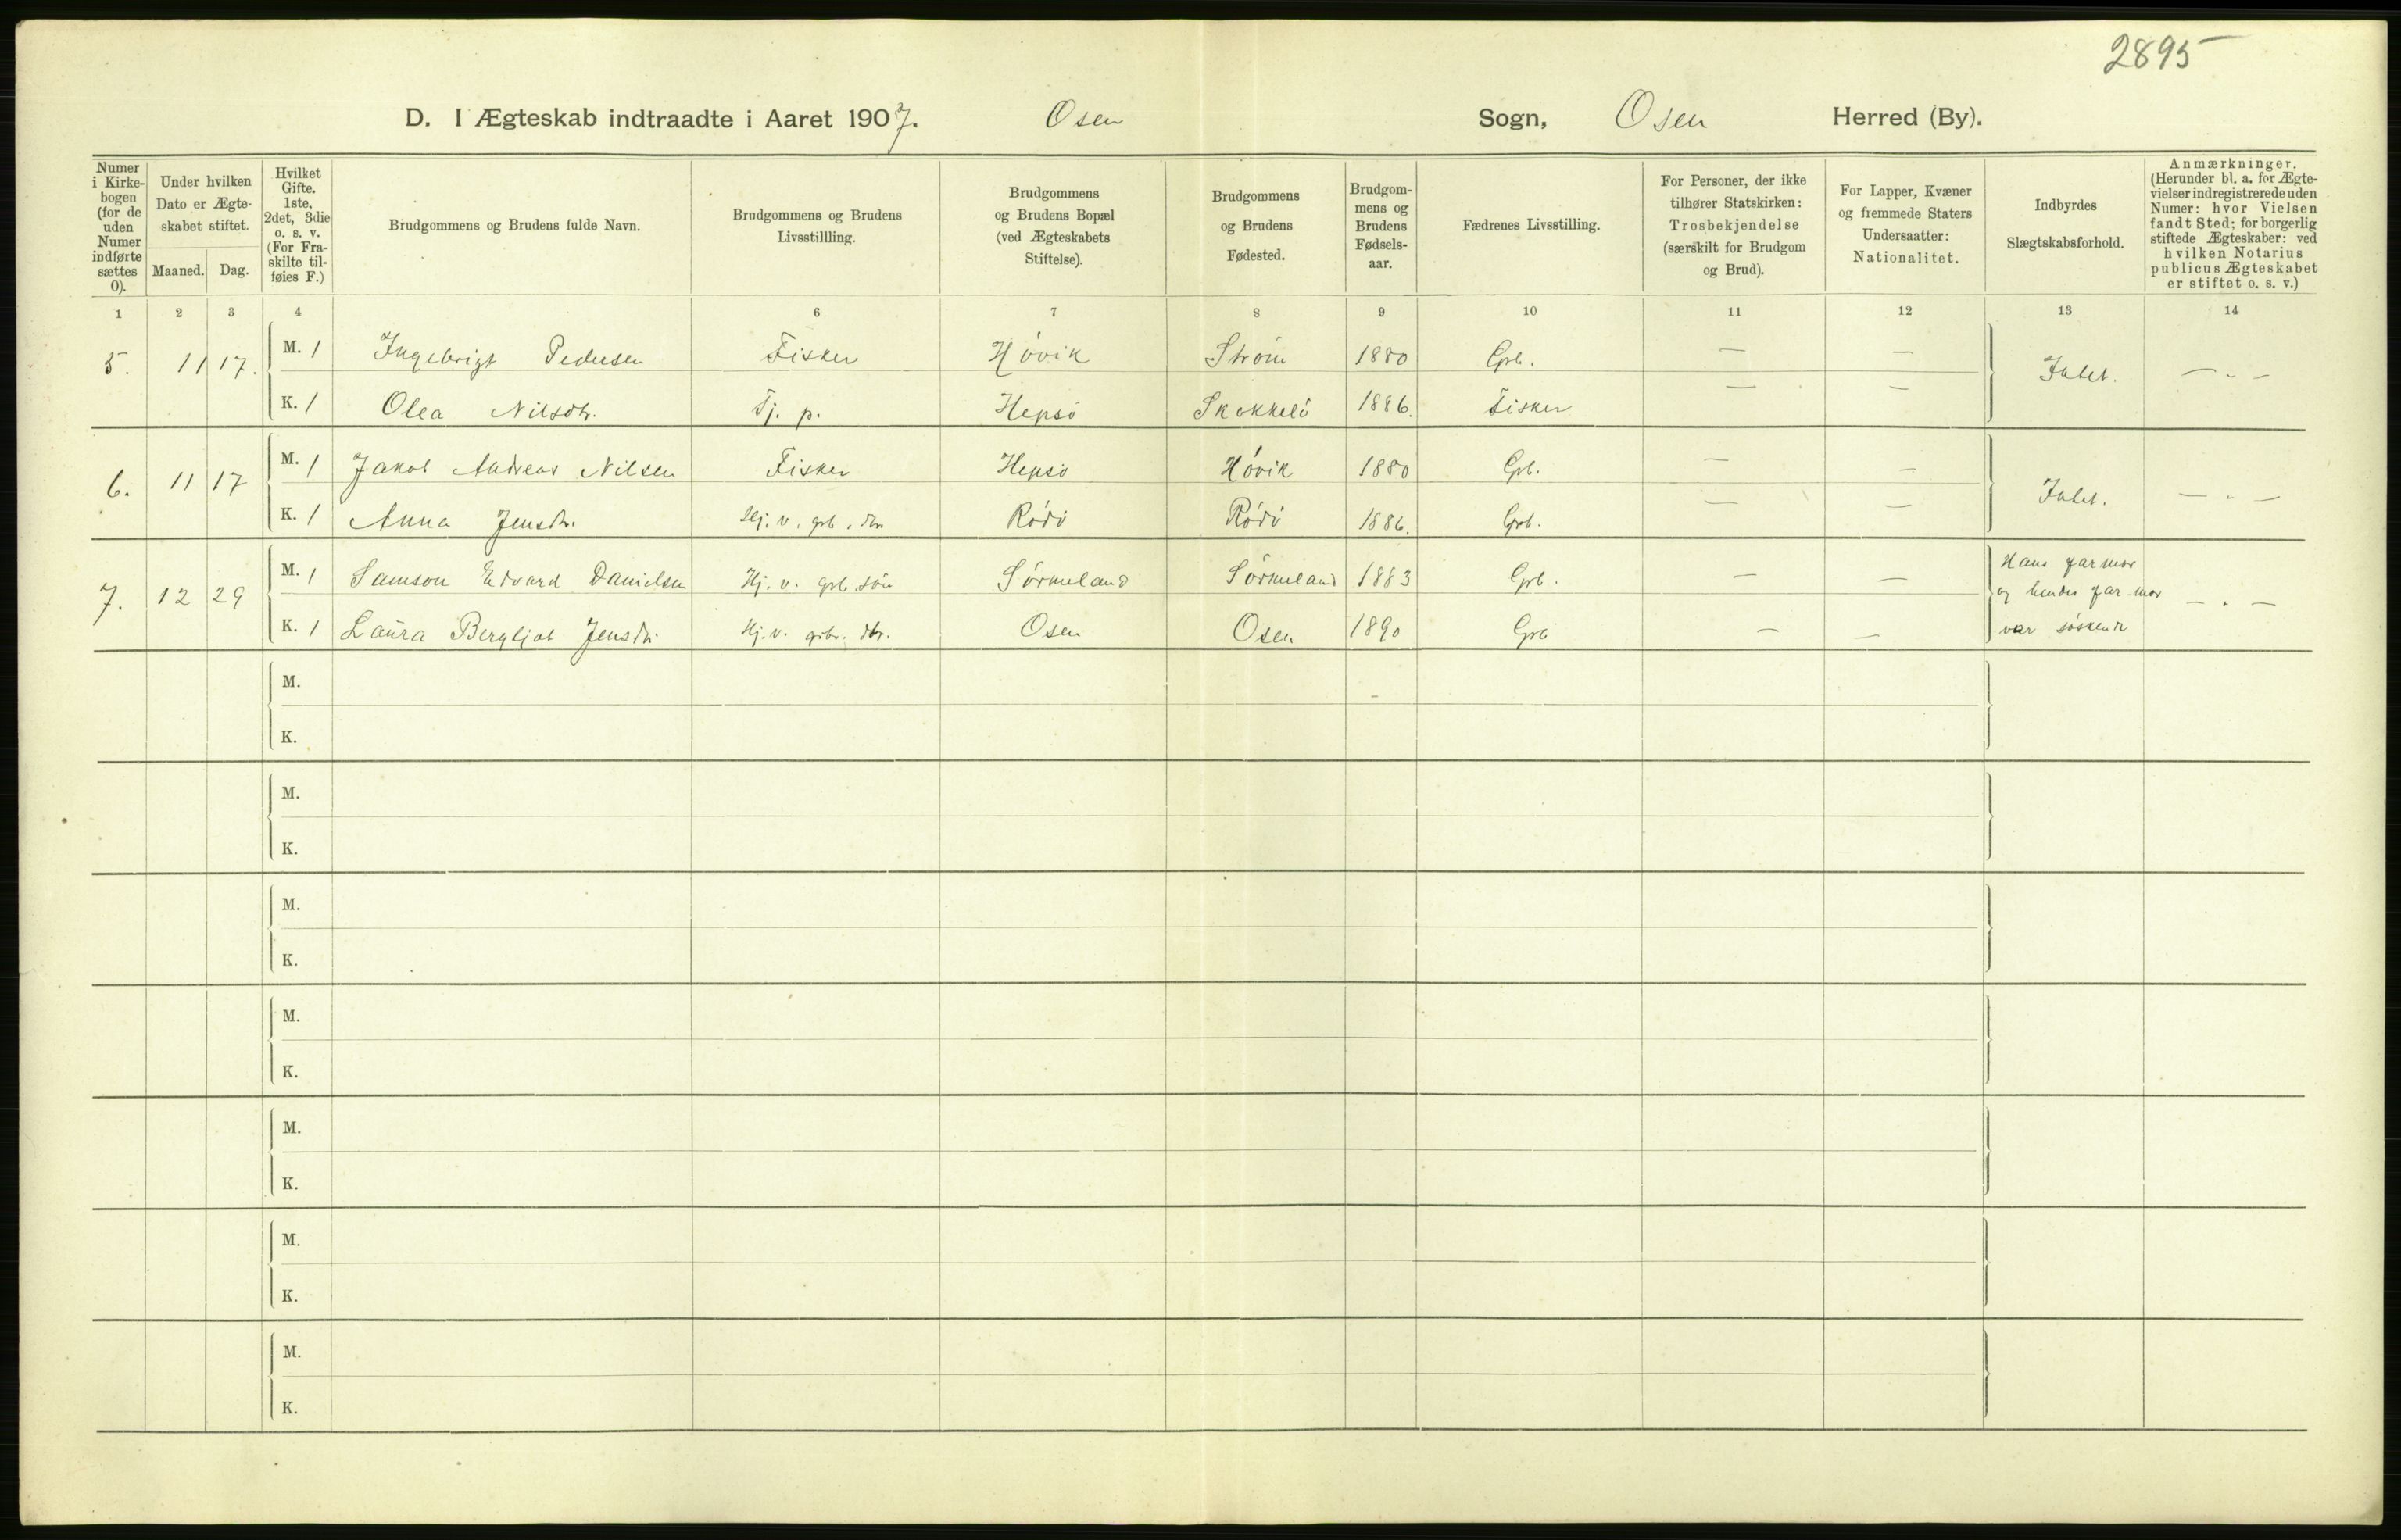 2895
D. I Ægteskab indtraadte i Aaret 1907. Osen Sogn, Osen Herred (By).
Numer i Kirkebogen (for de uden Numer indførte sættes 0).
Under hvilken Dato er Ægteskabet stiftet.
Maaned. Dag.
Hvilket Gifte. 1ste, 2det, 3die o. s. v. (For Fraskilte tilføies F.)
Brudgommens og Brudens fulde Navn.
Brudgommens og Brudens Livsstillling.
Brudgommens og Brudens Bopæl (ved Ægteskabets Stiftelse).
Brudgommens og Brudens Fødested.
Brudgommens og Brudens Fødselsaar.
Fædrenes Livsstilling.
For Personer, der ikke tilhører Statskirken: Trosbekjendelse (særskilt for Brudgom og Brud).
For Lapper, Kvæner og fremmede Staters Undersaatter: Nationalitet.
Indbyrdes Slægtskabsforhold.
Anmærkninger. (Herunder bl. a. for Ægtevielser indregistrerede uden Numer: hvor Vielsen fandt Sted; for borgerlig stiftede Ægteskaber: ved hvilken Notarius publicus Ægteskabet er stiftet o. s. v.)
1 2 3 4 6 7 8 9 10 11 12 13 14
5. 11 17. M. 1 Ingebrigt Pedersen Fisker Høvik Strøm 1880 Grb. — — Intet. — - —
K. 1 Olea Nilsdtr. Tj. p. Hepsø 1886. Fisker — —
6. 11 17 M. 1 Jakob Andreas Nilsen Fisker Hepsø Høvik 1880 Grb. — — Intet. — - —
K. 1 Anna Jensdtr. Hj. v. grb. dtr Rødø Rødø 1886. Grb. — —
7. 12 29 M. 1 Samson Edvard Danielsen Hj. v. grb. søn Sørmeland Sørmeland 1883 Grb. — — Hans farmor og hendes far-mor var søskende — - —
K. 1 Laura Bergljot Jensdtr. Hj. v. grbr. dtr. Osen Osen 1890 Grb — —
M.
K.
M.
K.
M.
K.
M.
K.
M.
K.
M.
K.
M.
K.